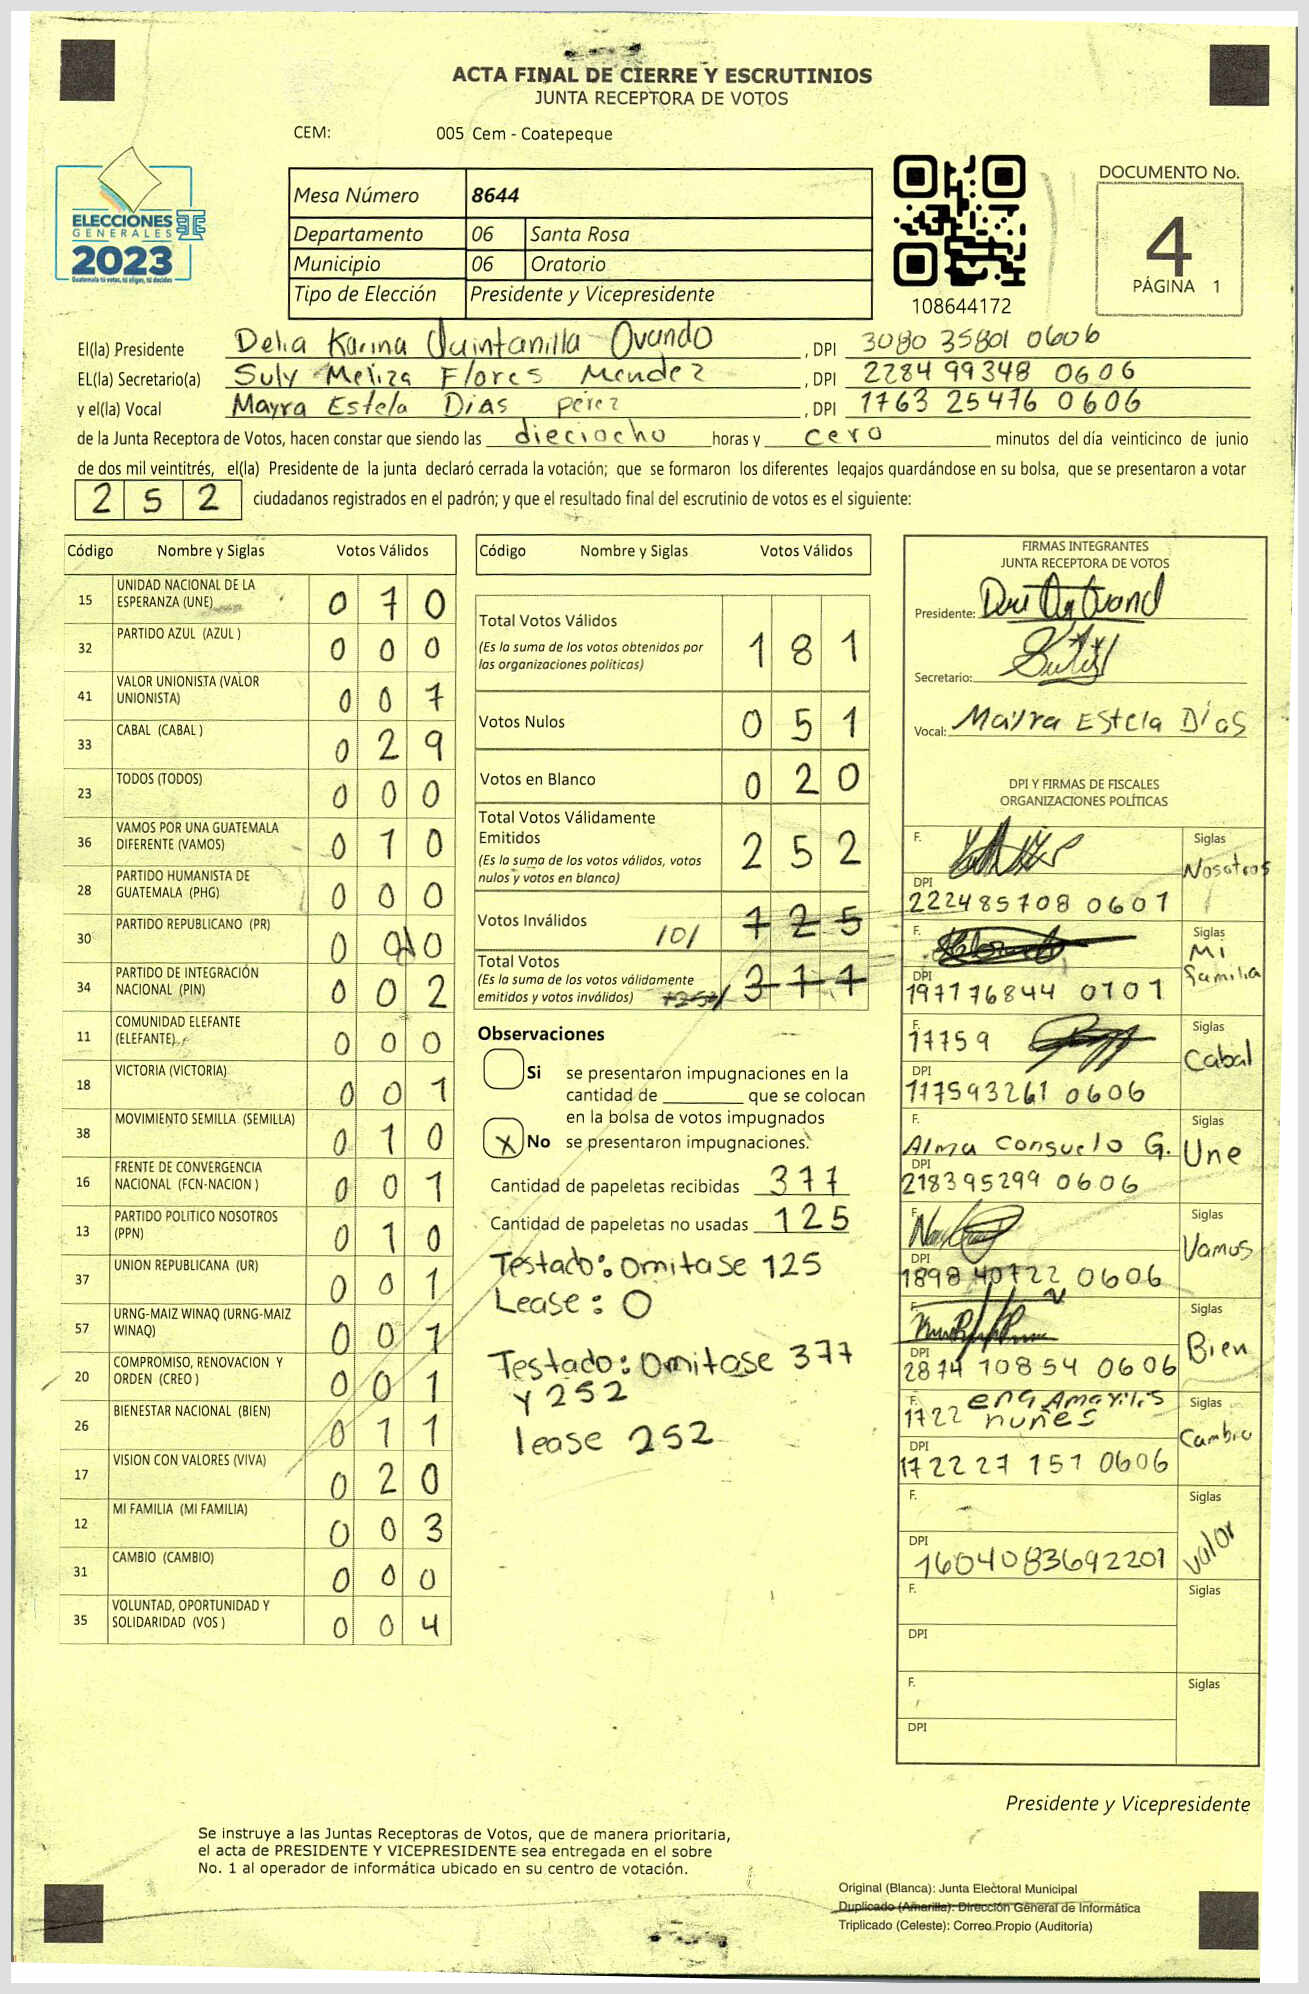 ACTA FINAL DE CIERRE Y ESCRUTINIOS
JUNTA RECEPTORA DE VOTOS
CEM: 005 Cem - Coatepeque
ELECCIONES
GENERALES
2023
Guatemala tú votas, tú eliges, tú decides
Mesa Número 8644
Departamento 06 Santa Rosa
Municipio 06 Oratorio
Tipo de Elección Presidente y Vicepresidente
108644172
DOCUMENTO No.
4
PÁGINA 1
El(la) Presidente Delia Karina Quintanilla Ovando , DPI 3080 35801 0606
EL(la) Secretario(a) Suly Meliza Flores Mendez , DPI 2284 99348 0606
y el(la) Vocal Mayra Estela Dias perez , DPI 1763 25476 0606
de la Junta Receptora de Votos, hacen constar que siendo las dieciocho horas y cero minutos del día veinticinco de junio
de dos mil veintitrés, el(la) Presidente de la junta declaró cerrada la votación; que se formaron los diferentes legajos quardándose en su bolsa, que se presentaron a votar
252 ciudadanos registrados en el padrón; y que el resultado final del escrutinio de votos es el siguiente:
Código Nombre y Siglas Votos Válidos
15 UNIDAD NACIONAL DE LA ESPERANZA (UNE) 0 7 0
32 PARTIDO AZUL (AZUL ) 0 0 0
41 VALOR UNIONISTA (VALOR UNIONISTA) 0 0 7
33 CABAL (CABAL ) 0 2 9
23 TODOS (TODOS) 0 0 0
36 VAMOS POR UNA GUATEMALA DIFERENTE (VAMOS) 0 1 0
28 PARTIDO HUMANISTA DE GUATEMALA (PHG) 0 0 0
30 PARTIDO REPUBLICANO (PR) 0 0
34 PARTIDO DE INTEGRACIÓN NACIONAL (PIN) 0 0 2
11 COMUNIDAD ELEFANTE (ELEFANTE) 0 0 0
18 VICTORIA (VICTORIA) 0 0 1
38 MOVIMIENTO SEMILLA (SEMILLA) 0 1 0
16 FRENTE DE CONVERGENCIA NACIONAL (FCN-NACION ) 0 0 1
13 PARTIDO POLITICO NOSOTROS (PPN) 0 1 0
37 UNION REPUBLICANA (UR) 0 0 1
57 URNG-MAIZ WINAQ (URNG-MAIZ WINAQ) 0 0 1
20 COMPROMISO, RENOVACION Y ORDEN (CREO ) 0 0 1
26 BIENESTAR NACIONAL (BIEN) 0 1 1
17 VISION CON VALORES (VIVA) 0 2 0
12 MI FAMILIA (MI FAMILIA) 0 0 3
31 CAMBIO (CAMBIO) 0 0 0
35 VOLUNTAD, OPORTUNIDAD Y SOLIDARIDAD (VOS ) 0 0 4
Código Nombre y Siglas Votos Válidos
Total Votos Válidos 1 8 1
(Es la suma de los votos obtenidos por
las organizaciones políticas)
Votos Nulos 0 5 1
Votos en Blanco 0 2 0
Total Votos Válidamente
Emitidos 2 5 2
(Es la suma de los votos válidos, votos
nulos y votos en blanco)
Votos Inválidos /0/ 1 2 5
Total Votos
(Es la suma de los votos válidamente
emitidos y votos inválidos) 3 7 7
Observaciones
Si se presentaron impugnaciones en la
cantidad de ________ que se colocan
en la bolsa de votos impugnados
X No se presentaron impugnaciones.
Cantidad de papeletas recibidas 377
Cantidad de papeletas no usadas 125
Testado: omitase 125
Lease: 0
Testado: omitase 377
y 252
lease 252
FIRMAS INTEGRANTES
JUNTA RECEPTORA DE VOTOS
Presidente:
Secretario:
Vocal: Mayra Estela Días
DPI Y FIRMAS DE FISCALES
ORGANIZACIONES POLÍTICAS
F. Siglas Nosotros
DPI 222485708 0601
F. Siglas Mi familia
DPI 197176844 0101
F. 17759 Siglas Cabal
DPI 177593261 0606
F. Alma Consuelo G. Siglas Une
DPI 218395299 0606
F. Siglas Vamos
DPI 1898 40722 0606
F. Siglas Bien
DPI 2874 10854 0606
F. 1722 ena Amarilis nuñes Siglas Cambio
DPI 172227 151 0606
F. Siglas valor
DPI 1604083692201
F. Siglas
DPI
F. Siglas
DPI
Presidente y Vicepresidente
Se instruye a las Juntas Receptoras de Votos, que de manera prioritaria,
el acta de PRESIDENTE Y VICEPRESIDENTE sea entregada en el sobre
No. 1 al operador de informática ubicado en su centro de votación.
Original (Blanca): Junta Electoral Municipal
Duplicado (Amarilla): Dirección General de Informática
Triplicado (Celeste): Correo Propio (Auditoría)